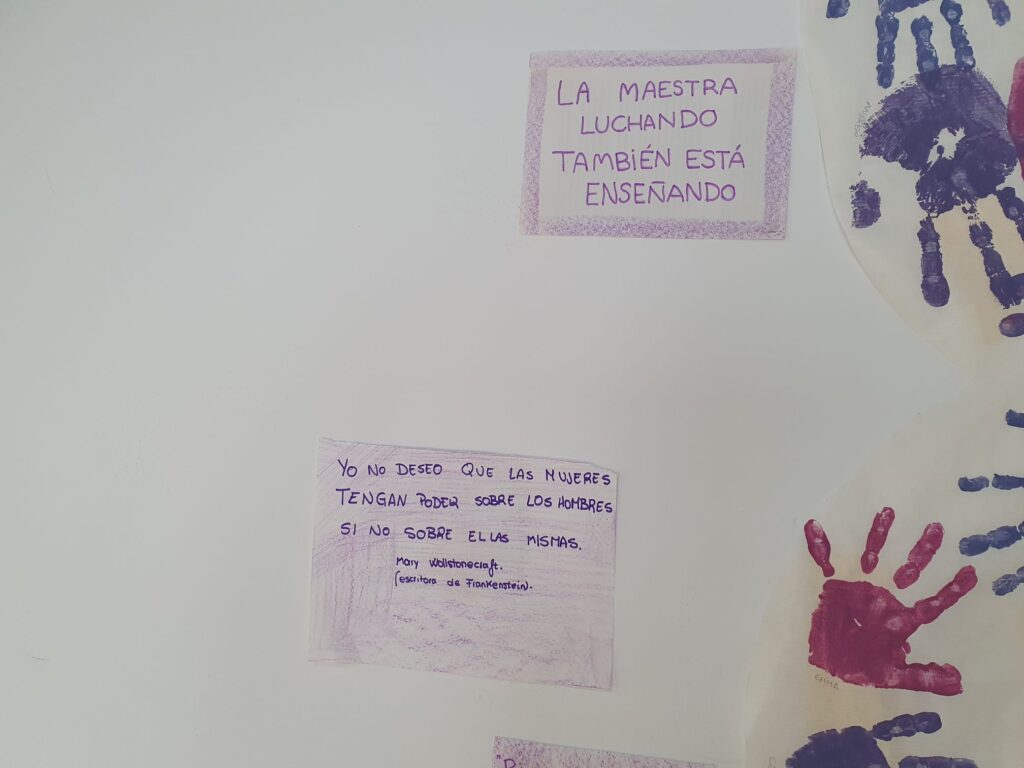 LA MAESTRA
LUCHANDO
TAMBIÉN ESTÁ
ENSEÑANDO
YO NO DESEO QUE LAS MUJERES
TENGAN PODER SOBRE LOS HOMBRES
SI NO SOBRE ELLAS MISMAS.
Mary Wollstonecraft.
(escritora de Frankenstein).
EMMA